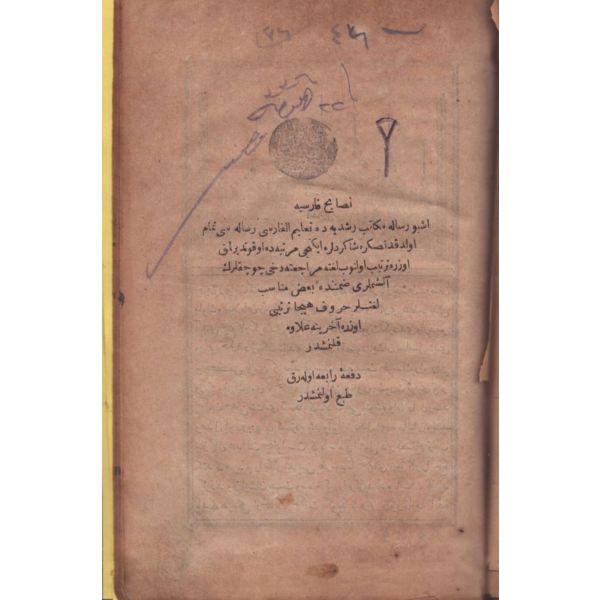 ٤٧٦
نصایح فارسیه
اشبو رساله مکاتب رشدیه ده تعلیم الفارسی رساله سی تمام
اولدقدنصکره شاکردانه ایکنجی مرتبه ده اوقوندیرلمق
اوزره ترتیب اولنوب لغته مراجعته دخی چوجقلرك
آلشملری ضمننده بعض مناسب
لغتلر حروف هیجا ترتیبی
اوزره آخرینه علاوه
قلنمشدر
دفعهٔ رابعه اوله رق
طبع اولنمشدر